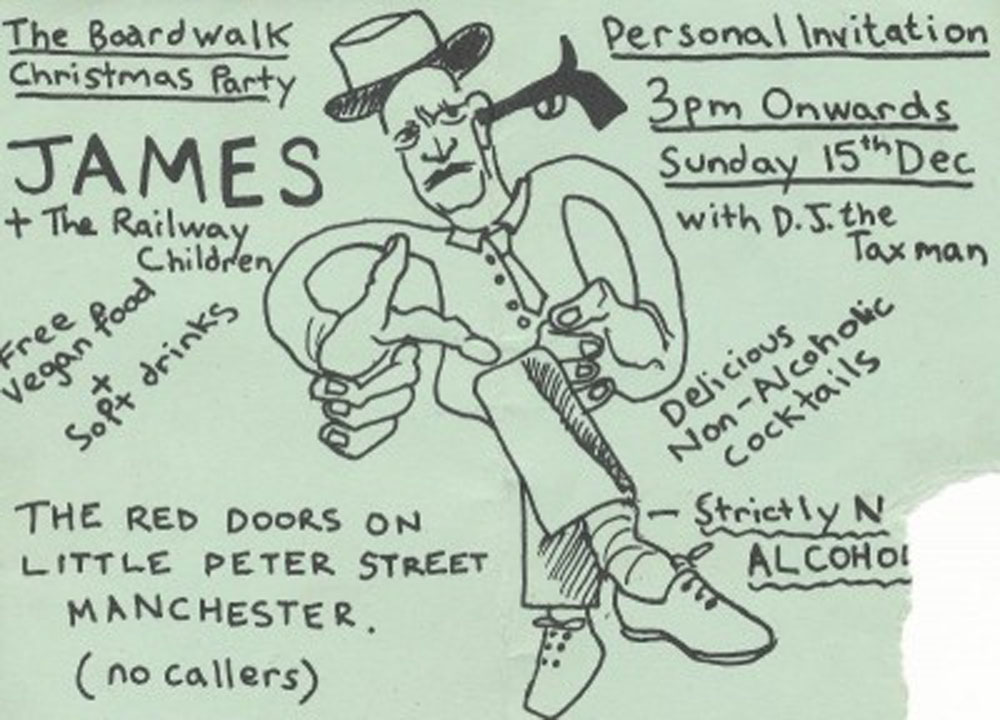 The Boardwalk
Christmas Party
JAMES
+ The Railway
Children
Free
vegan food
+
Soft drinks
Personal Invitation
3pm Onwards
Sunday 15th Dec
with D.J. the
Taxman
Delicious
Non-Alcoholic
Cocktails
- Strictly N
ALCOHOL
THE RED DOORS ON
LITTLE PETER STREET
MANCHESTER.
(no callers)